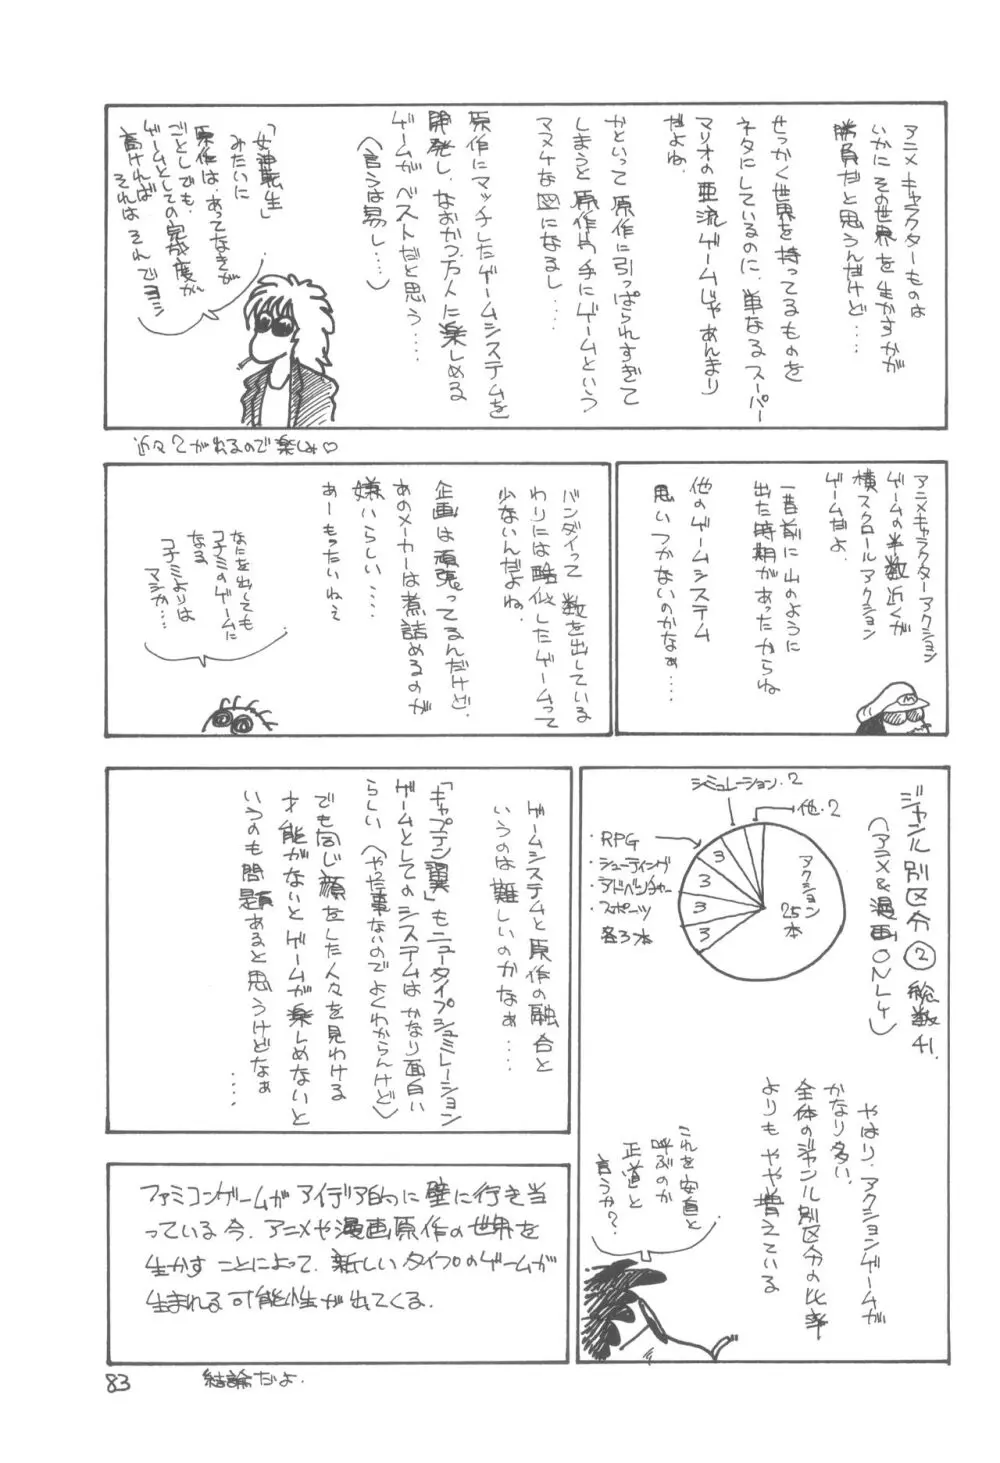 アニメキャラクターものは
いかにその世界を生かすかが
勝負だと思うんだけど……
せっかく世界を持ってるものを
ネタにしているのに、単なるスーパー
マリオの亜流ゲームじゃあんまり
だよね。
かといって原作に引っぱられすぎて
しまうと原作やる手にゲームという
マヌケな図になるし……
原作にマッチしたゲームシステムを
開発し、なおかつ万人に楽しめる
ゲームがベストだと思う……
(言うは易し……)
「女神転生」
みたいに
原作は、あってなきが
ごとしでも、
ゲームとしての完成度が
高ければ
それは それでヨシ
近々2が出るので楽しみ♡
アニメキャラクターアクション
ゲームの半数近くが
横スクロールアクション
ゲームだよ。
一昔前に山のように
出た時期があったからね
他のゲームシステム
思いつかないのかなぁ……
M
バンダイって数を出している
わりには酷似したゲームって
少ないんだよね。
企画は頑張ってるんだけど、
あのメーカーは煮詰めるのが
嫌いらしい……
あーもったいねぇ
なにを出しても
コナミのゲームに
なる
コナミよりは
マシか……
ジャンル別区分② 総数41.
(アニメ&漫画ONLY)
シミュレーション・2
他・2
・RPG
・シューティング
・アドベンチャー
・スポーツ
各3本
3
3
3
3
アクション
25本
やはり、アクションゲームが
かなり多い、
全体のジャンル別区分の比率
よりも やや増えている
これを安直と
呼ぶのか
正道と
言うか?
ゲームシステムと原作の融合と
いうのは難しいのかなぁ……
「キャプテン翼」もニュータイプシュミレーション
ゲームとしてのシステムはかなり面白い
らしい(やった事ないのでよくわからんけど)
でも同じ顔をした人々を見わける
才能がないとゲームが楽しめないと
いうのも問題あると思うけどなぁ
……
ファミコンゲームがアイデア的に壁に行き当
っている今、アニメや漫画原作の世界を
生かすことによって、新しいタイプのゲームが
生まれる可能性が出てくる.
結論だよ.
83